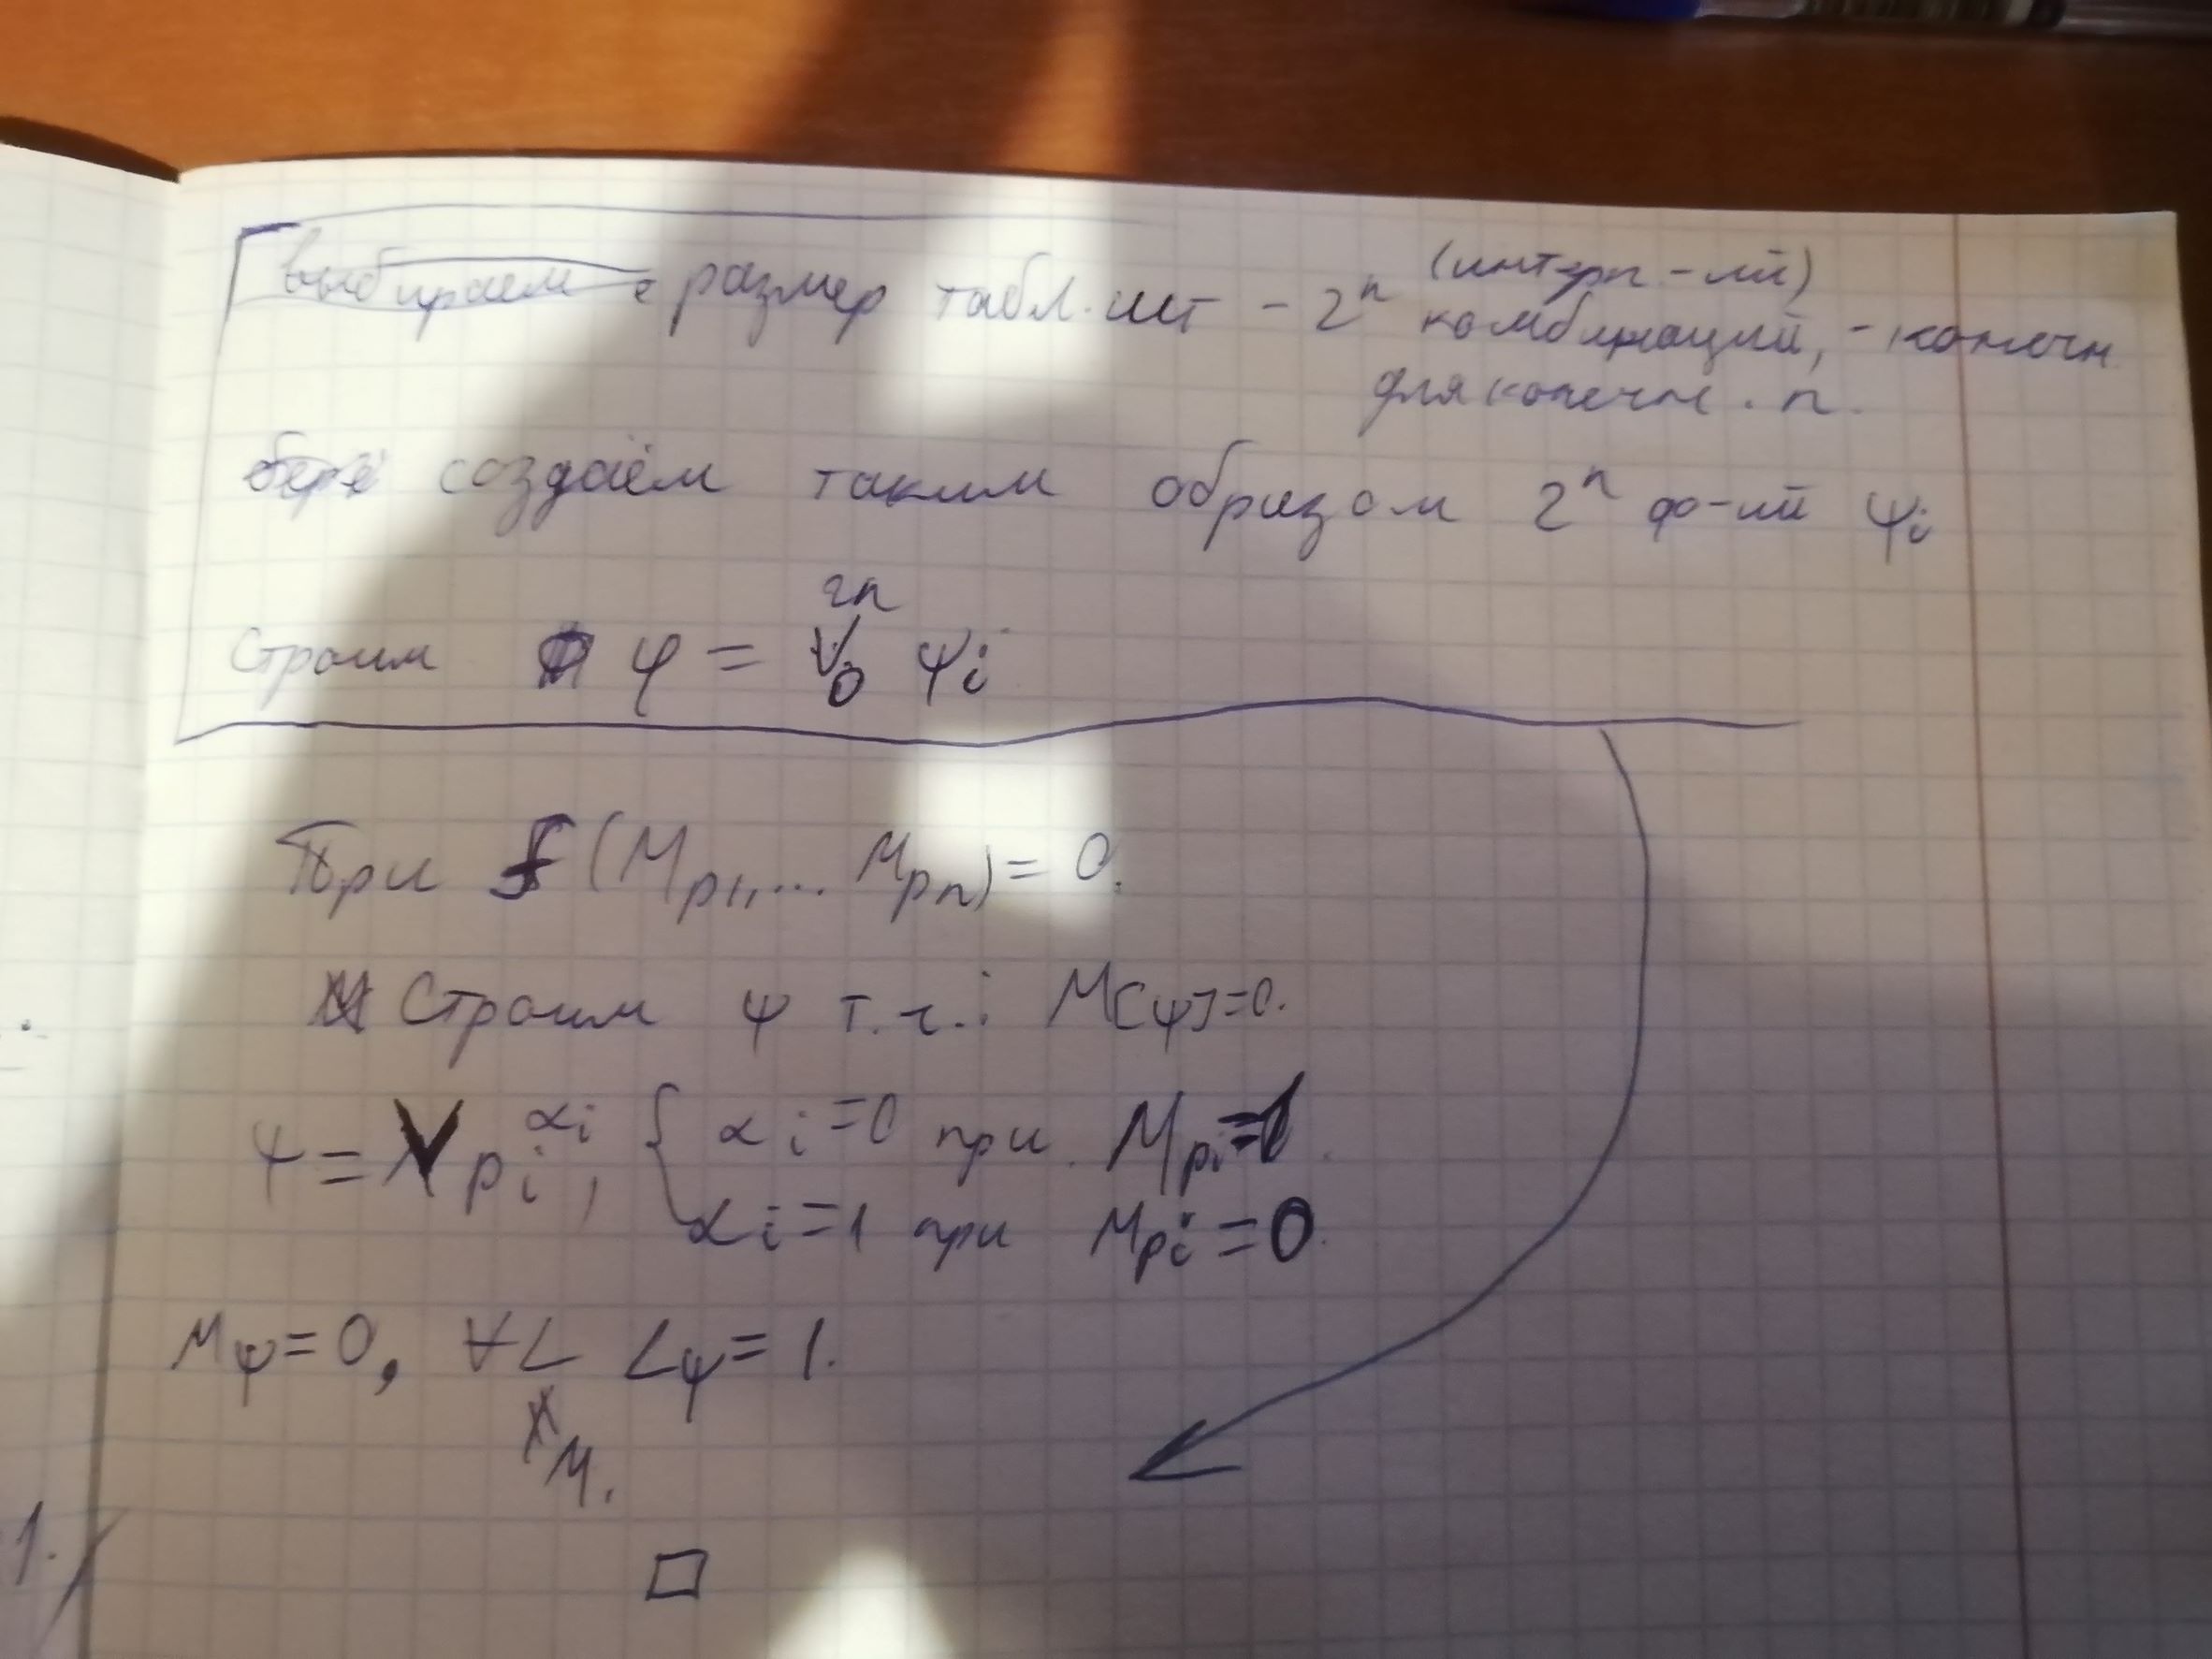 выбираем размер табл. ист - 2ⁿ (интерп-ий)
комбинаций, - конечн
для конечн. n.
создаём таким образом 2ⁿ ф-ий ψi
Строим φ = ⋁₀²ⁿ ψi
При f(Mp1,... Mpn) = 0.
Строим ψ т.ч.: M[ψ]=0.
ψ = ⋁ pi^αi, { αi=0 при Mpi=1.
αi=1 при Mpi=0.
Mψ=0, ∀L Lψ=1.
M.
1.